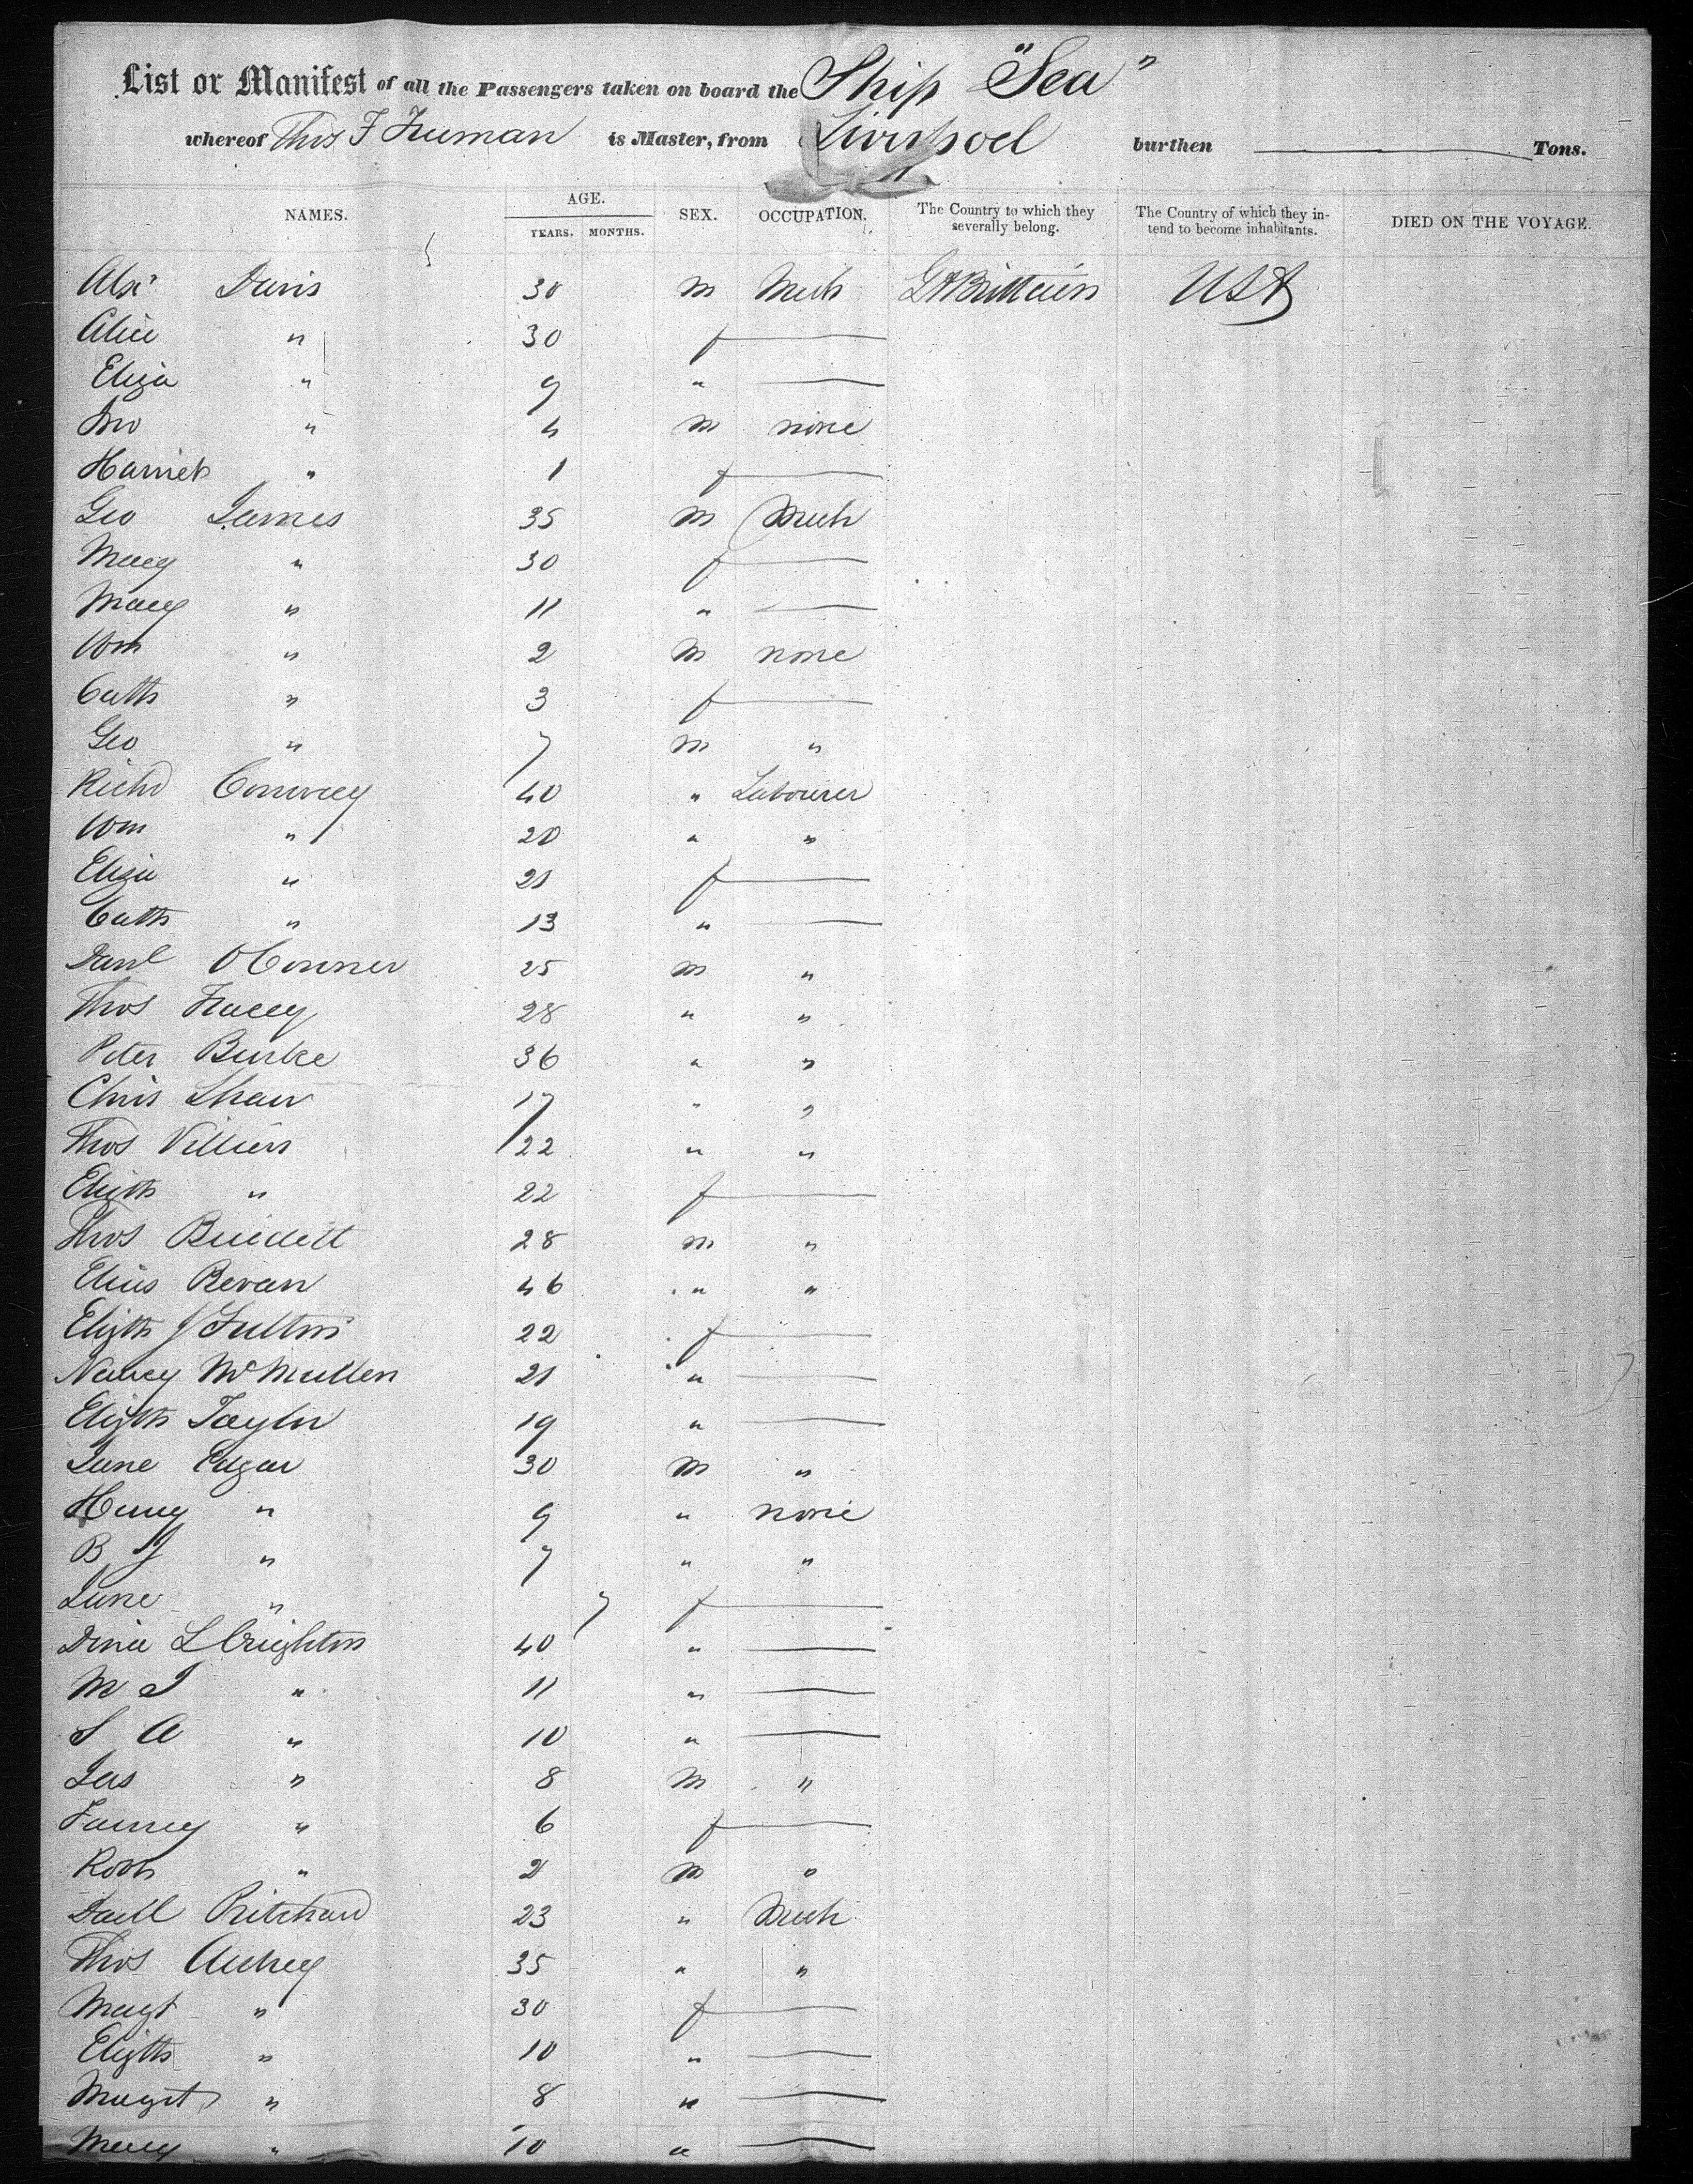 List or Manifest of all the Passengers taken on board the Ship "Sea"
whereof Thos F Freeman is Master, from Liverpool burthen Tons.
NAMES. AGE. YEARS. MONTHS. SEX. OCCUPATION. The Country to which they severally belong. The Country of which they intend to become inhabitants. DIED ON THE VOYAGE.
Davis 30 m Mech Gt Brittain USA
Alice " 30 f
Eliza " 9 "
Jno " 4 m none
Harriet " 1 f
Geo James 35 m Mech
Mary " 30 f
Mary " 11 "
Wm " 2 m none
Cath " 3 f
Geo " 7 m "
Richd Conway 40 " Labourer
Wm " 20 " "
Eliza " 21 f
Cath " 13 "
Danl OConner 25 m "
Thos 28 " "
Peter Burke 36 " "
Chris Shaw 17 " "
Thos Villiers 22 " "
Elizth " 22 f
Thos 28 m "
Elias Bevan 46 " "
Elizth J Fulton 22 f
Nancy McMullen 21 "
Elizth Taylor 19 "
Jane Edgar 30 m "
Henry " 9 " none
B J " 7 " "
Jane " 7 f
L Crighton 40 "
M J " 11 "
S A " 10 "
Jas " 8 m "
Fanny " 6 f
Robt " 2 m "
Danl Pritchard 23 " Mech
Thos Aubrey 35 " "
Magt " 30 f
Elizth " 10 "
Magt " 8 "
Mary " 10 "